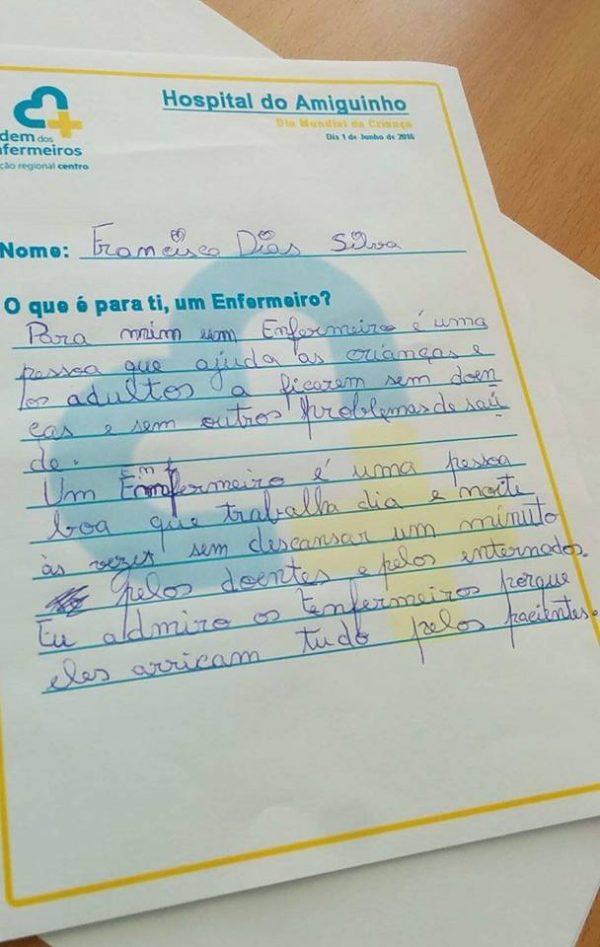 Hospital do Amiguinho
Dia Mundial da Criança
Dia 1 de Junho de 2016
dem dos
fermeiros
ção regional centro
Nome: Francisca Dias Silva
O que é para ti, um Enfermeiro?
Para mim um Enfermeiro é uma
pessoa que ajuda as crianças e
os adultos a ficarem sem doen
ças e sem outros problemas de saú
de.
Um Enfermeiro é uma pessoa
boa que trabalha dia e noite
às vezes sem descansar um minuto
pelos doentes e pelos enternados.
Eu admiro os Enfermeiros porque
eles arricam tudo pelos pacientes.